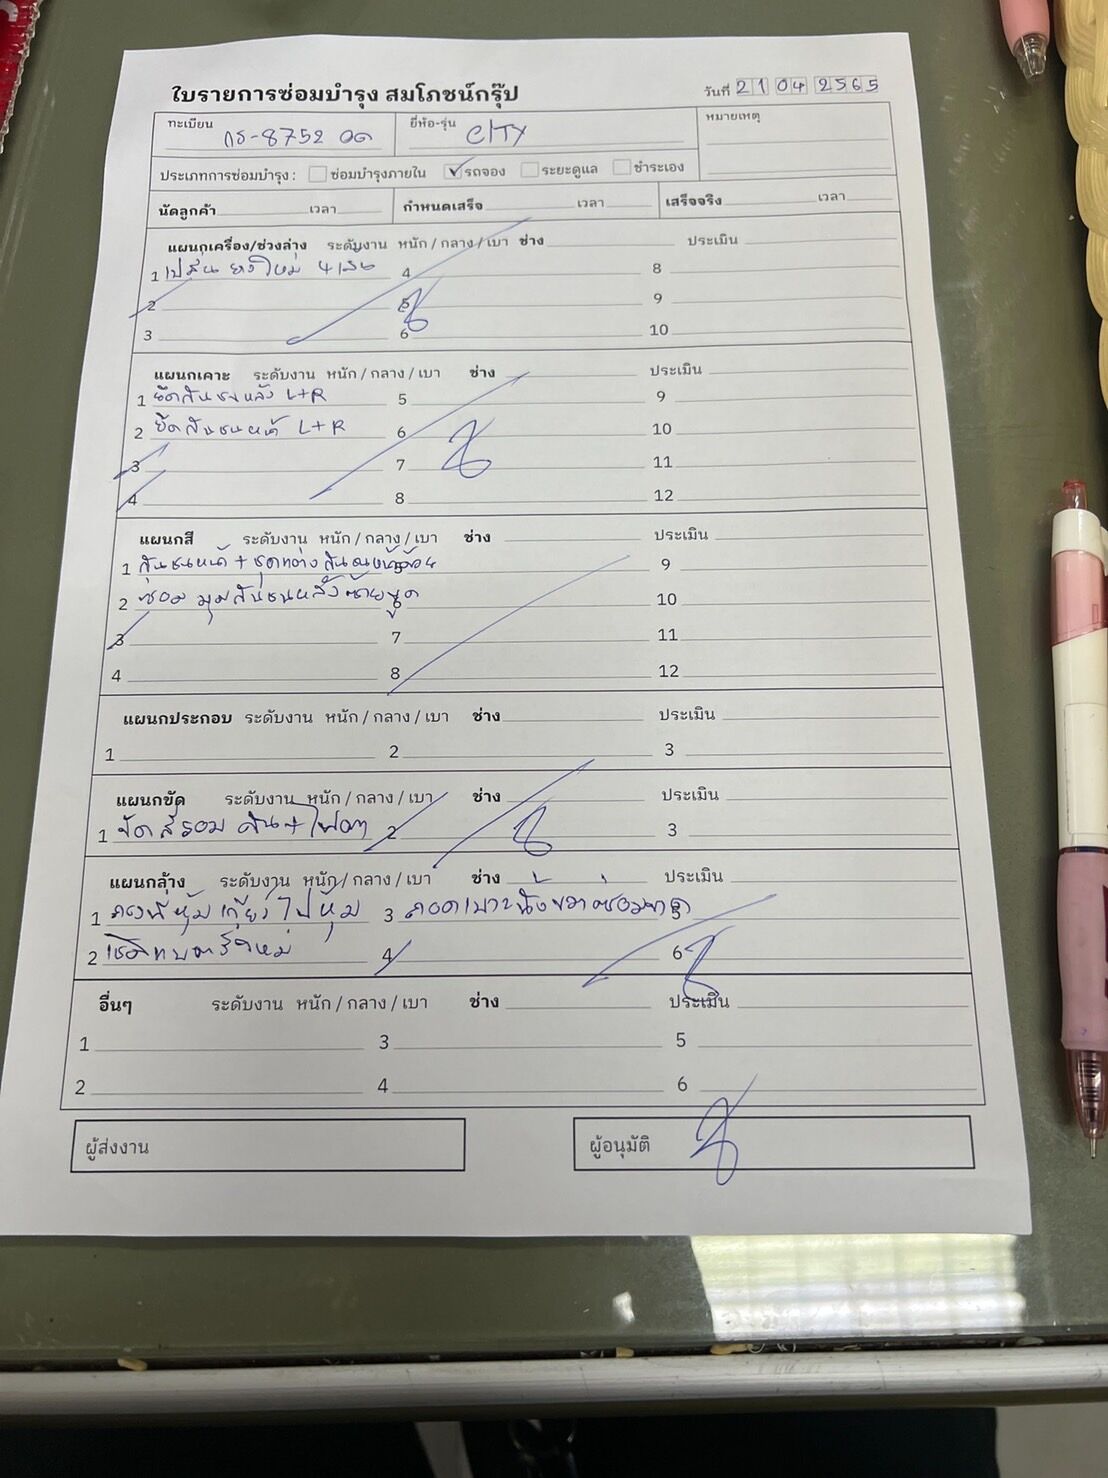 ใบรายการซ่อมบำรุง สมโภชน์กรุ๊ป วันที่ 21 04 2565
ทะเบียน กธ-8752 ยี่ห้อ-รุ่น CITY หมายเหตุ
ประเภทการซ่อมบำรุง : ซ่อมบำรุงภายใน ✓ รถจอง ระยะดูแล ชำระเอง
นัดลูกค้า เวลา กำหนดเสร็จ เวลา เสร็จจริง เวลา
แผนกเครื่อง/ช่วงล่าง ระดับงาน หนัก / กลาง / เบา ช่าง ประเมิน
1 เปลี่ยน ยางใหม่ 4 เส้น 4 8
2 5 9
3 6 10
แผนกเคาะ ระดับงาน หนัก / กลาง / เบา ช่าง ประเมิน
1 ยึดกันชนหลัง L+R 5 9
2 ยึดกันชนหน้า L+R 6 10
3 7 11
4 8 12
แผนกสี ระดับงาน หนัก / กลาง / เบา ช่าง ประเมิน
1 กันชนหน้า + ชุดแต่ง 9
2 ซ่อม มุมกันชนหลังซ้ายขูด 10
3 7 11
4 8 12
แผนกประกอบ ระดับงาน หนัก / กลาง / เบา ช่าง ประเมิน
1 2 3
แผนกขัด ระดับงาน หนัก / กลาง / เบา ช่าง ประเมิน
1 ขัดสีรอบคัน + ไฟตา 2 3
แผนกล้าง ระดับงาน หนัก / กลาง / เบา ช่าง ประเมิน
1 หุ้มเกียร์ ไปหุ้ม 3 ถอดเบาะ
2 4 6
อื่นๆ ระดับงาน หนัก / กลาง / เบา ช่าง ประเมิน
1 3 5
2 4 6
ผู้ส่งงาน ผู้อนุมัติ